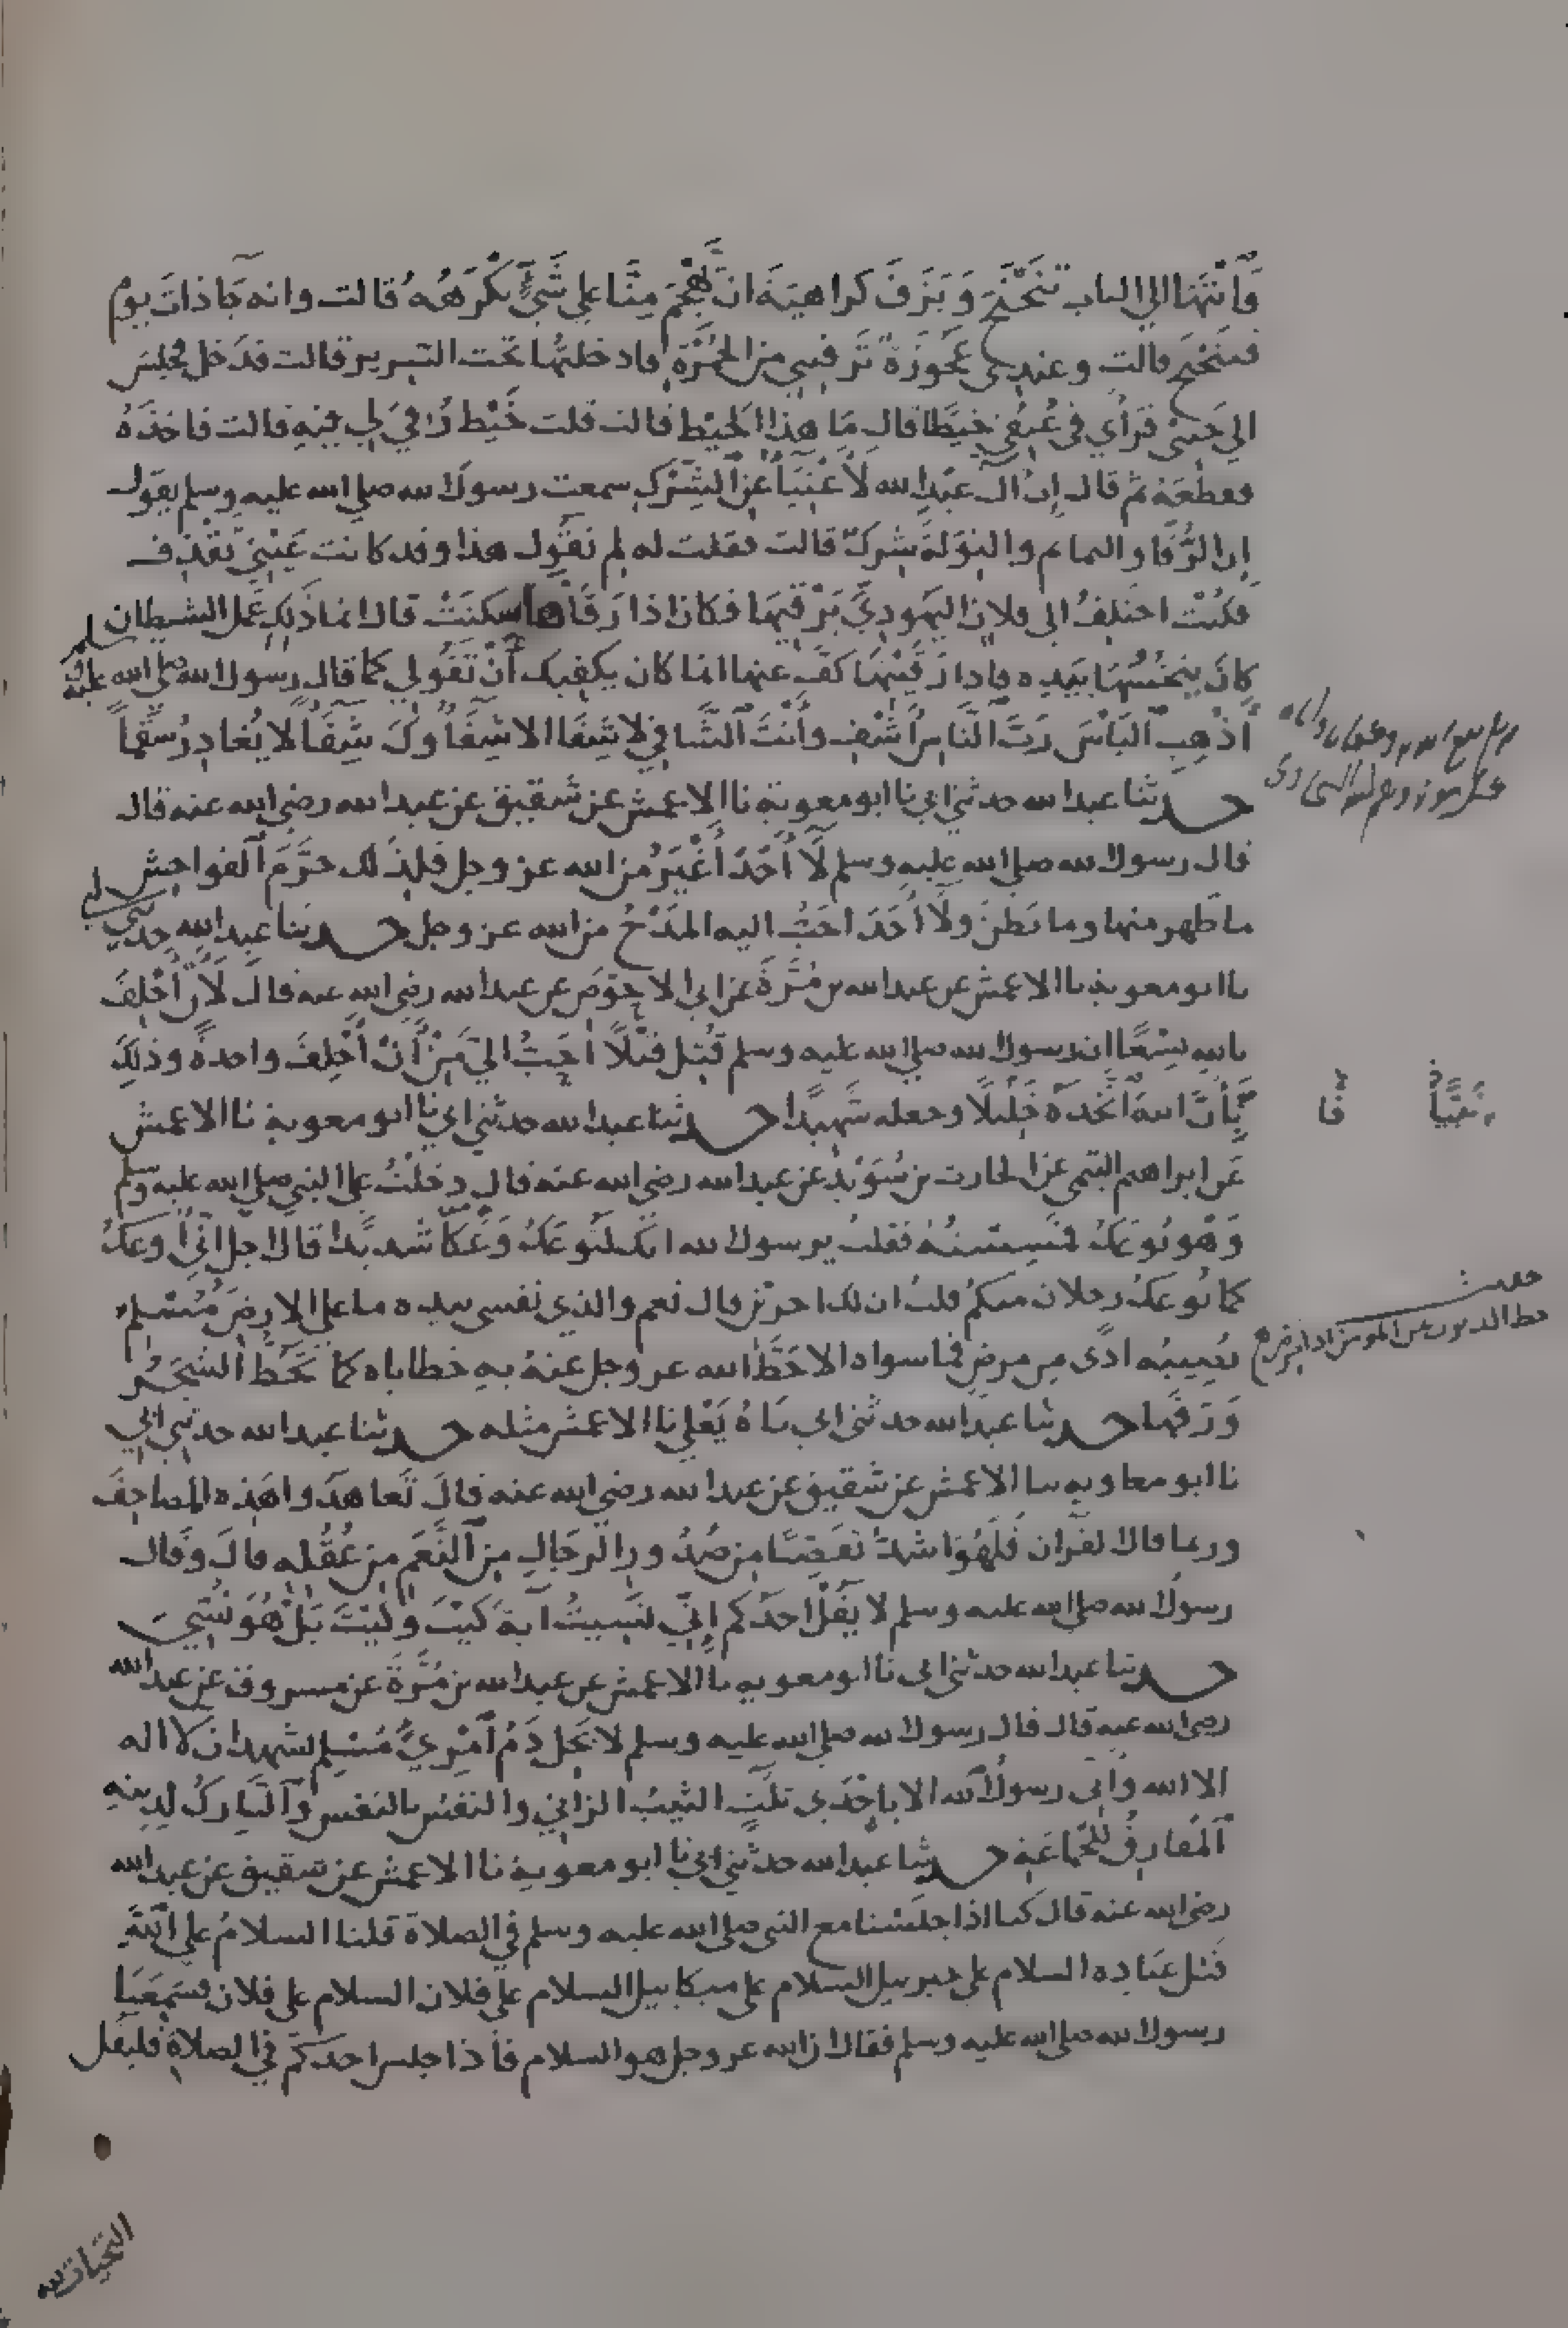 فَانْتَهَا الي الباب تَنَحْنَحَ وَبَزَقَ كراهيَةَ ان يَهْجُمَ مِنَّا علي شَيْءٍ يَكْرَهُهُ قالت وانه جَا ذاتَ يوم
فتنَحْنَحَ قالت وعندي عَجُوزَةٌ تَرقيني من الحُمْرَةِ فادخلتُها تحت السَّرير قالت فدَخل فجلسَ
الي جَنْبي فَرأي في عُنُقي خيطًا قال مَا هذا الخيْط قالت قلت خَيْط رُقِيَ لِي فيهِ قالت فاخذَهُ
فقطعَهُ ثم قال إن آل عبْد الله لأَغْنِيَآءُ عن الشِّرْكِ سمعت رسول الله صلي الله عليه وسلم يقول
إن الرُّقَا والتمايم والتِّوَلَةَ شِركٌ قالت فقلت له لِم تقُول هذا وقد كانت عَيْني تَقْذِف
فكُنْت اختلِفُ الي فلان اليَهودِيِّ يَرْقيهَا فكان اذا رَقَاها سكنَتْ قال انما ذَلِكِ عَمَل الشيطان
كانَ ينْخُسُهَا بِيَدِه فاذا رَقَيْتِهَا كَفَّ عنها انما كان يكفيك أنْ تَقُولي كما قال رسول الله صلي الله عليه وسلم
أَذْهِبِ ٱلبَأْسَ رَبَّ ٱلنَّاسِ ٱشْفِ وأَنْتَ ٱلشَّافي لا شِفَآ الا شِفَآؤُكَ شِفَآءً لا يُغادِر سَقَمًا
حدثنا عبد الله حدثني ابي نا ابو معوية نا الاعمش عن شقيق عن عبد الله رضي الله عنه قال
قال رسول الله صلي الله عليه وسلم لَا أَحَدَ أَغْيَرُ من الله عز وجل فلِذَلك حَرَّمَ ٱلفواحِش
ما ظهر منها وما بَطنَ ولَا أَحَدَ احَبُّ اليه المَدْحُ من الله عز وجل حدثنا عبد الله حدثني ابي
نا ابو معوية نا الاعمش عن عبد الله بن مُرَّةَ عن ابي الاحوَص عن عبد الله رضي الله عنه قال لَأَنْ أَحْلِفَ
بالله تِسْعًا ان رسول الله صلي الله عليه وسلم قُتِل قتْلًا أحَبُّ اليَّ مِنْ أَنْ أَحْلِفَ واحدةً وذلِكَ
بِأَنَّ اللهَ ٱتَّخَذَهُ نبيًّا وجعله شَهِيدًا حدثنا عبد الله حدثني ابي نا ابو معوية نا الاعمش
عن ابراهيم التيمي عن الحارث بن سُوَيْدٍ عن عبد الله رضي الله عنه قال دخلتُ علي النبي صلي الله عليه وسلم
وَهْو يُوعَكُ فمَسِسْتُهُ فقلت يرسول الله انك لتُوعَكُ وَعْكًا شديدًا قال اجل انِّي أُوعَكُ
كما يُوعَكُ رجلان منكم قلتُ ان لك اجرين قال نعم والذي نفسي بيده ما علي الارضِ مُسْلِم
يُصِيبُه اذًى من مرضٍ فما سواه الا حَطَّ الله عز وجل عنهُ بهِ خطاياه كما تَحُطُّ الشجَرُ
وَرَقَها حدثنا عبد الله حدثني ابي نَاهُ يَعْلي نا الاعمش مثله حدثنا عبد الله حدثني ابي
نا ابو معاوية نا الاعمش عن شقيق عن عبد الله رضي الله عنه قالَ تَعاهَدوا هَذه المصاحِفَ
وربما قال القرآن فَلَهُوَ اشد تفَصِّيًا من صُدُورِ الرّجَالِ مِن ٱلنَّعَمِ مِن عُقُلِهِ قالَ وقال
رسول الله صلي الله عليه وسلم لا يَقُلْ احدُكم إِنِّي نَسيتُ آيةَ كَيْتَ وكَيْتَ بَلْ هُوَ نُسِّيَ
حدثنا عبد الله حدثني ابي نا ابو معوية نا الاعمش عن عبد الله بن مُرَّةَ عن مسروق عن عبد الله
رضي الله عنه قال قال رسول الله صلي الله عليه وسلم لا يَحل دَمُ ٱمْرِيٍ مُسْلِم يشهد ان لا اله
الا الله وأني رسول الله الا بإحْدَى ثلَثٍ الثيبُ الزاني والنفسُ بالنفس وٱلتاركُ لِدينِهِ
ٱلمُفارِقُ لِلْجَمَاعَةِ حدثنا عبد الله حدثني ابي نا ابو معوية نا الاعمش عن شقيق عن عبد الله
رضي الله عنه قال كنا اذا جلسْنا مع النبي صلي الله عليه وسلم في الصلاة قلنا السلامُ علي اللَّهِ
قَبْل عبَادِه السلام علي جبريل السلام علي ميكاييل السلام علي فلان السلام علي فلان فسَمِعَنَا
رسول الله صلي الله عليه وسلم فقال ان الله عز وجل هو السلام فأذا جلس احدكم في الصلاة فليقل
التحيات لله